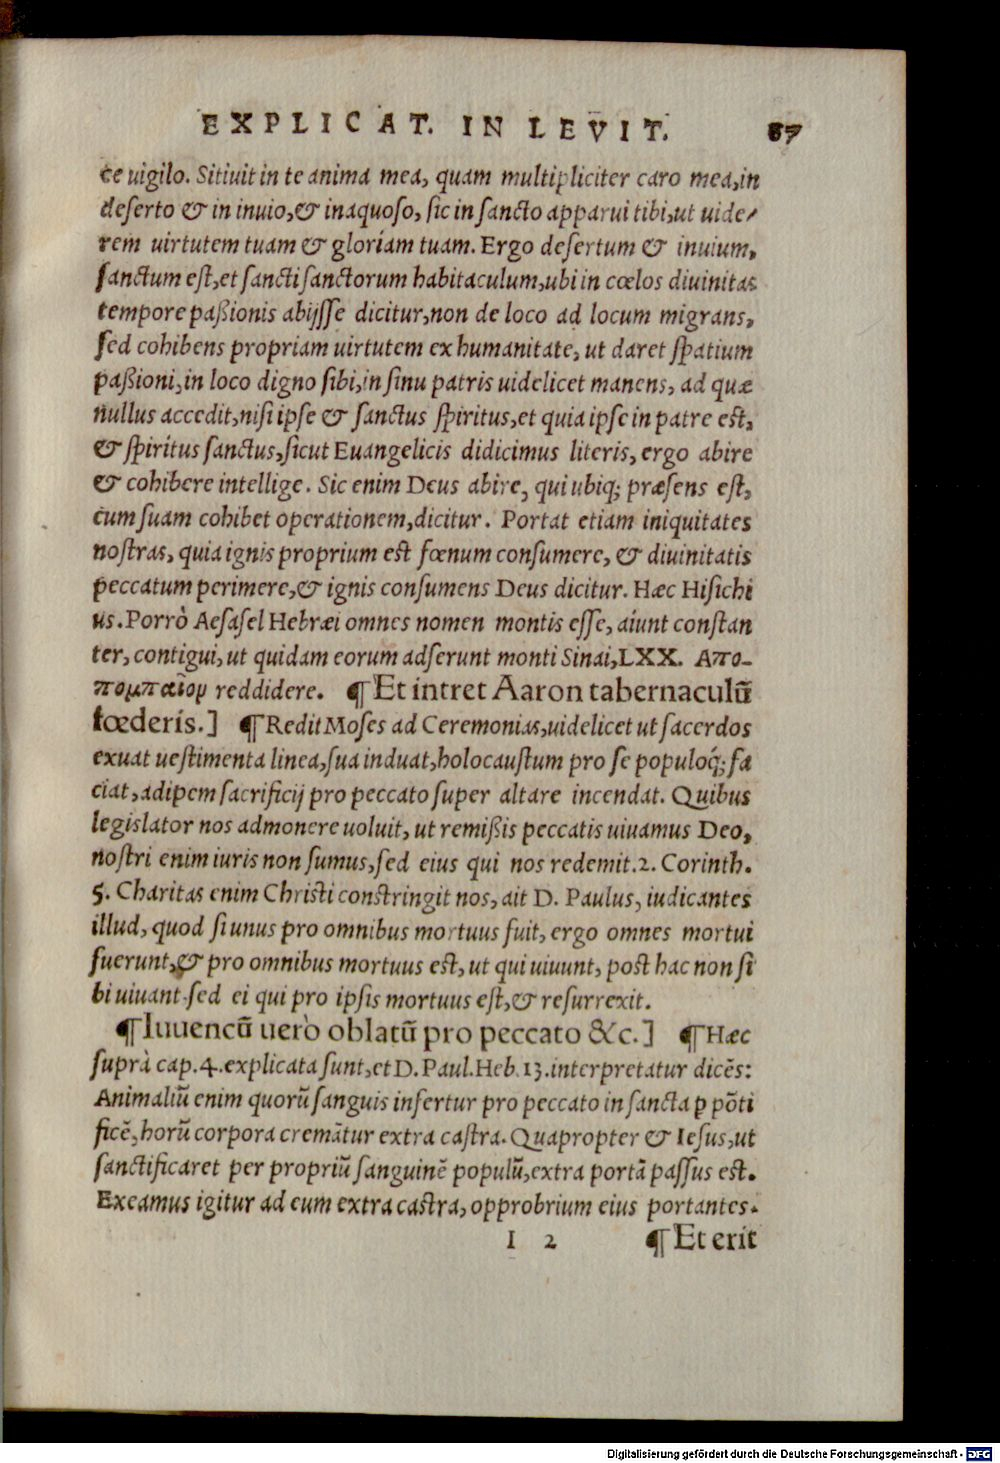 EXPLICAT. IN LEVIT. 67
te uigilo. Sitiuit in te anima mea, quam multipliciter caro mea, in
deserto & in inuio, & inaquoso, sic in sancto apparui tibi, ut uide/
rem uirtutem tuam & gloriam tuam. Ergo desertum & inuium,
sanctum est, et sancti sanctorum habitaculum, ubi in cœlos diuinitas
tempore paßionis abijsse dicitur, non de loco ad locum migrans,
sed cohibens propriam uirtutem ex humanitate, ut daret spatium
paßioni, in loco digno sibi, in sinu patris uidelicet manens, ad quæ
nullus accedit, nisi ipse & sanctus spiritus, et quia ipse in patre est,
& spiritus sanctus, sicut Euangelicis didicimus literis, ergo abire
& cohibere intellige. Sic enim Deus abire, qui ubiq; præsens est,
cum suam cohibet operationem, dicitur. Portat etiam iniquitates
nostras, quia ignis proprium est fœnum consumere, & diuinitatis
peccatum perimere, & ignis consumens Deus dicitur. Hæc Hisichi
us. Porrò Aesasel Hebræi omnes nomen montis esse, aiunt constan
ter, contigui, ut quidam eorum adserunt monti Sinai, LXX. Απο-
πομπαῖον reddidere. ¶ Et intret Aaron tabernaculũ
fœderis.] ¶ Redit Moses ad Ceremonias, uidelicet ut sacerdos
exuat uestimenta linea, sua induat, holocaustum pro se populoq́; fa
ciat, adipem sacrificij pro peccato super altare incendat. Quibus
legislator nos admonere uoluit, ut remißis peccatis uiuamus Deo,
nostri enim iuris non sumus, sed eius qui nos redemit. 2. Corinth.
5. Charitas enim Christi constringit nos, ait D. Paulus, iudicantes
illud, quod si unus pro omnibus mortuus fuit, ergo omnes mortui
fuerunt, & pro omnibus mortuus est, ut qui uiuunt, post hac non si
bi uiuant sed ei qui pro ipsis mortuus est, & resurrexit.
¶ Iuuencũ uerò oblatũ pro peccato &c.] ¶ Hæc
suprà cap. 4. explicata sunt, et D. Paul. Heb. 13. interpretatur dicẽs:
Animaliũ enim quorũ sanguis infertur pro peccato in sancta ꝑ põti
ficẽ, horũ corpora cremãtur extra castra. Quapropter & Iesus, ut
sanctificaret per propriũ sanguinẽ populũ, extra portã passus est.
Exeamus igitur ad eum extra castra, opprobrium eius portantes.
I 2 ¶ Et erit
Digitalisierung gefördert durch die Deutsche Forschungsgemeinschaft - DFG